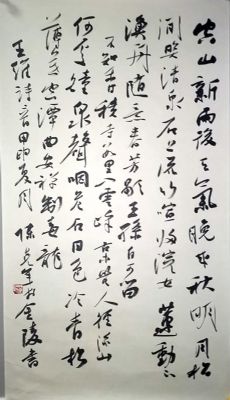 空山新雨後天氣晚来秋明月松
间照清泉石上流竹喧归浣女蓮動下
漁舟随意春芳歇王孫自可留
不知香積寺数里入雲峰古木無人徑深山
何處鐘泉聲咽危石日色冷青松
薄暮空潭曲安禪制毒龍
王維诗意甲申夏月 陳於金陵書